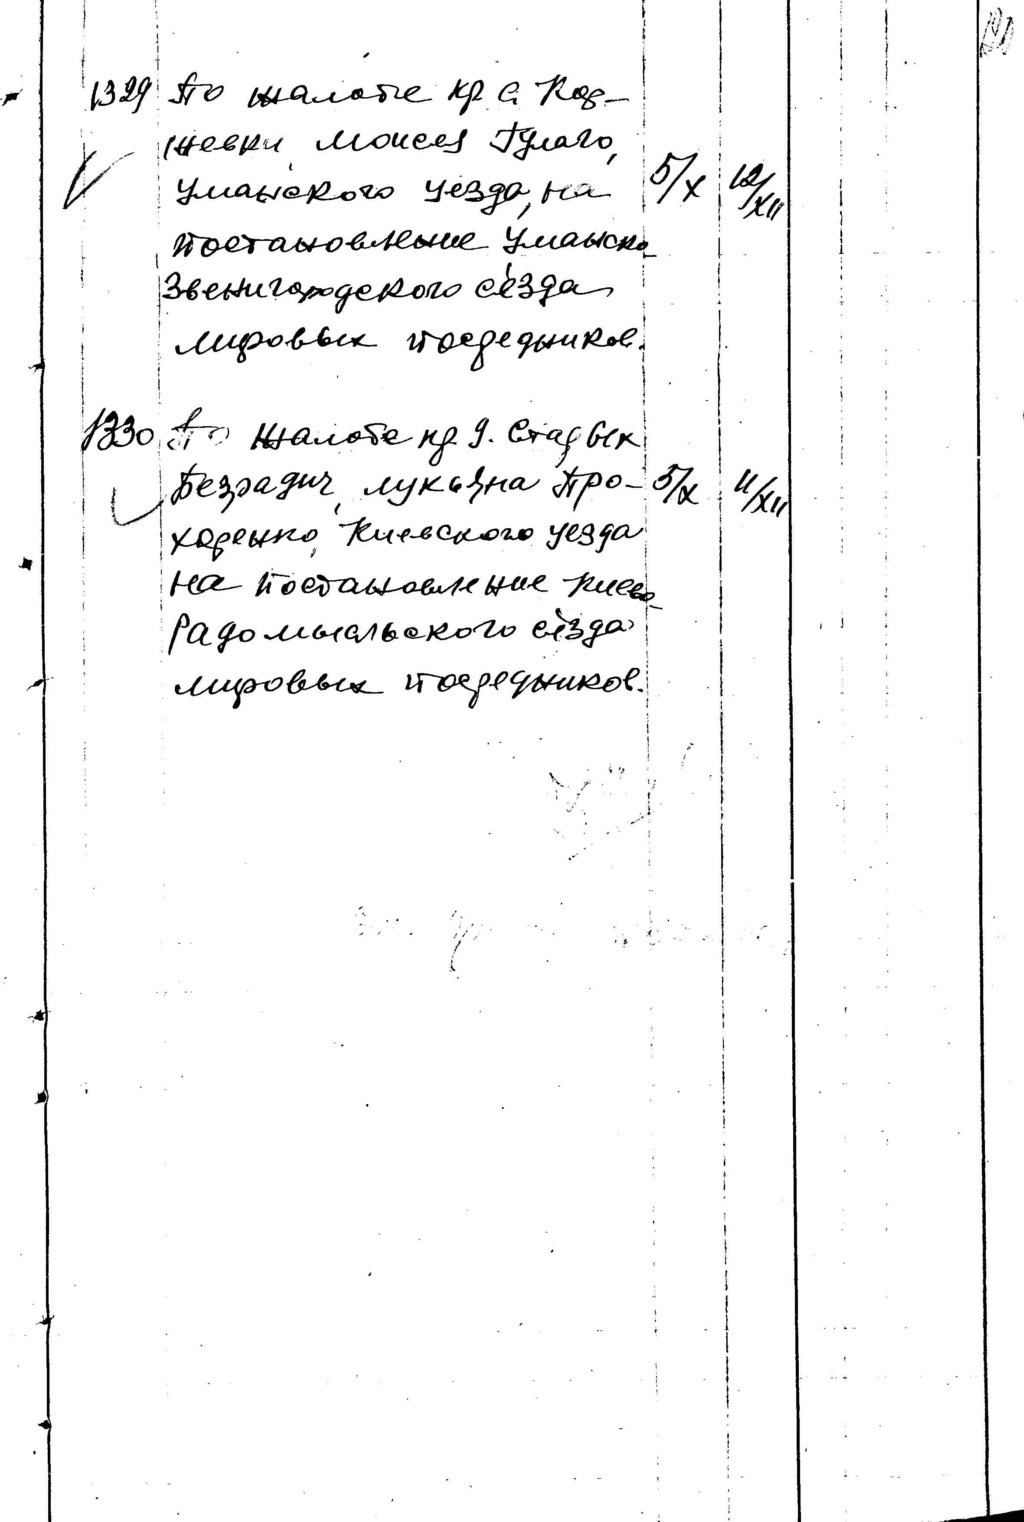 1329 По жалобе кр. с. Кор-
жевки, Моисея Гулаго,
Уманского уезда, на 5/X 12/XII
постановление Уманско-
Звенигородского съезда
мировых посредников.
1330 По жалобе кр. д. Старых
Безрадич, Лукьяна Про- 5/X 11/XII
хоренко, Киевского уезда
на постановление Киево-
Радомысльского съезда
мировых посредников.